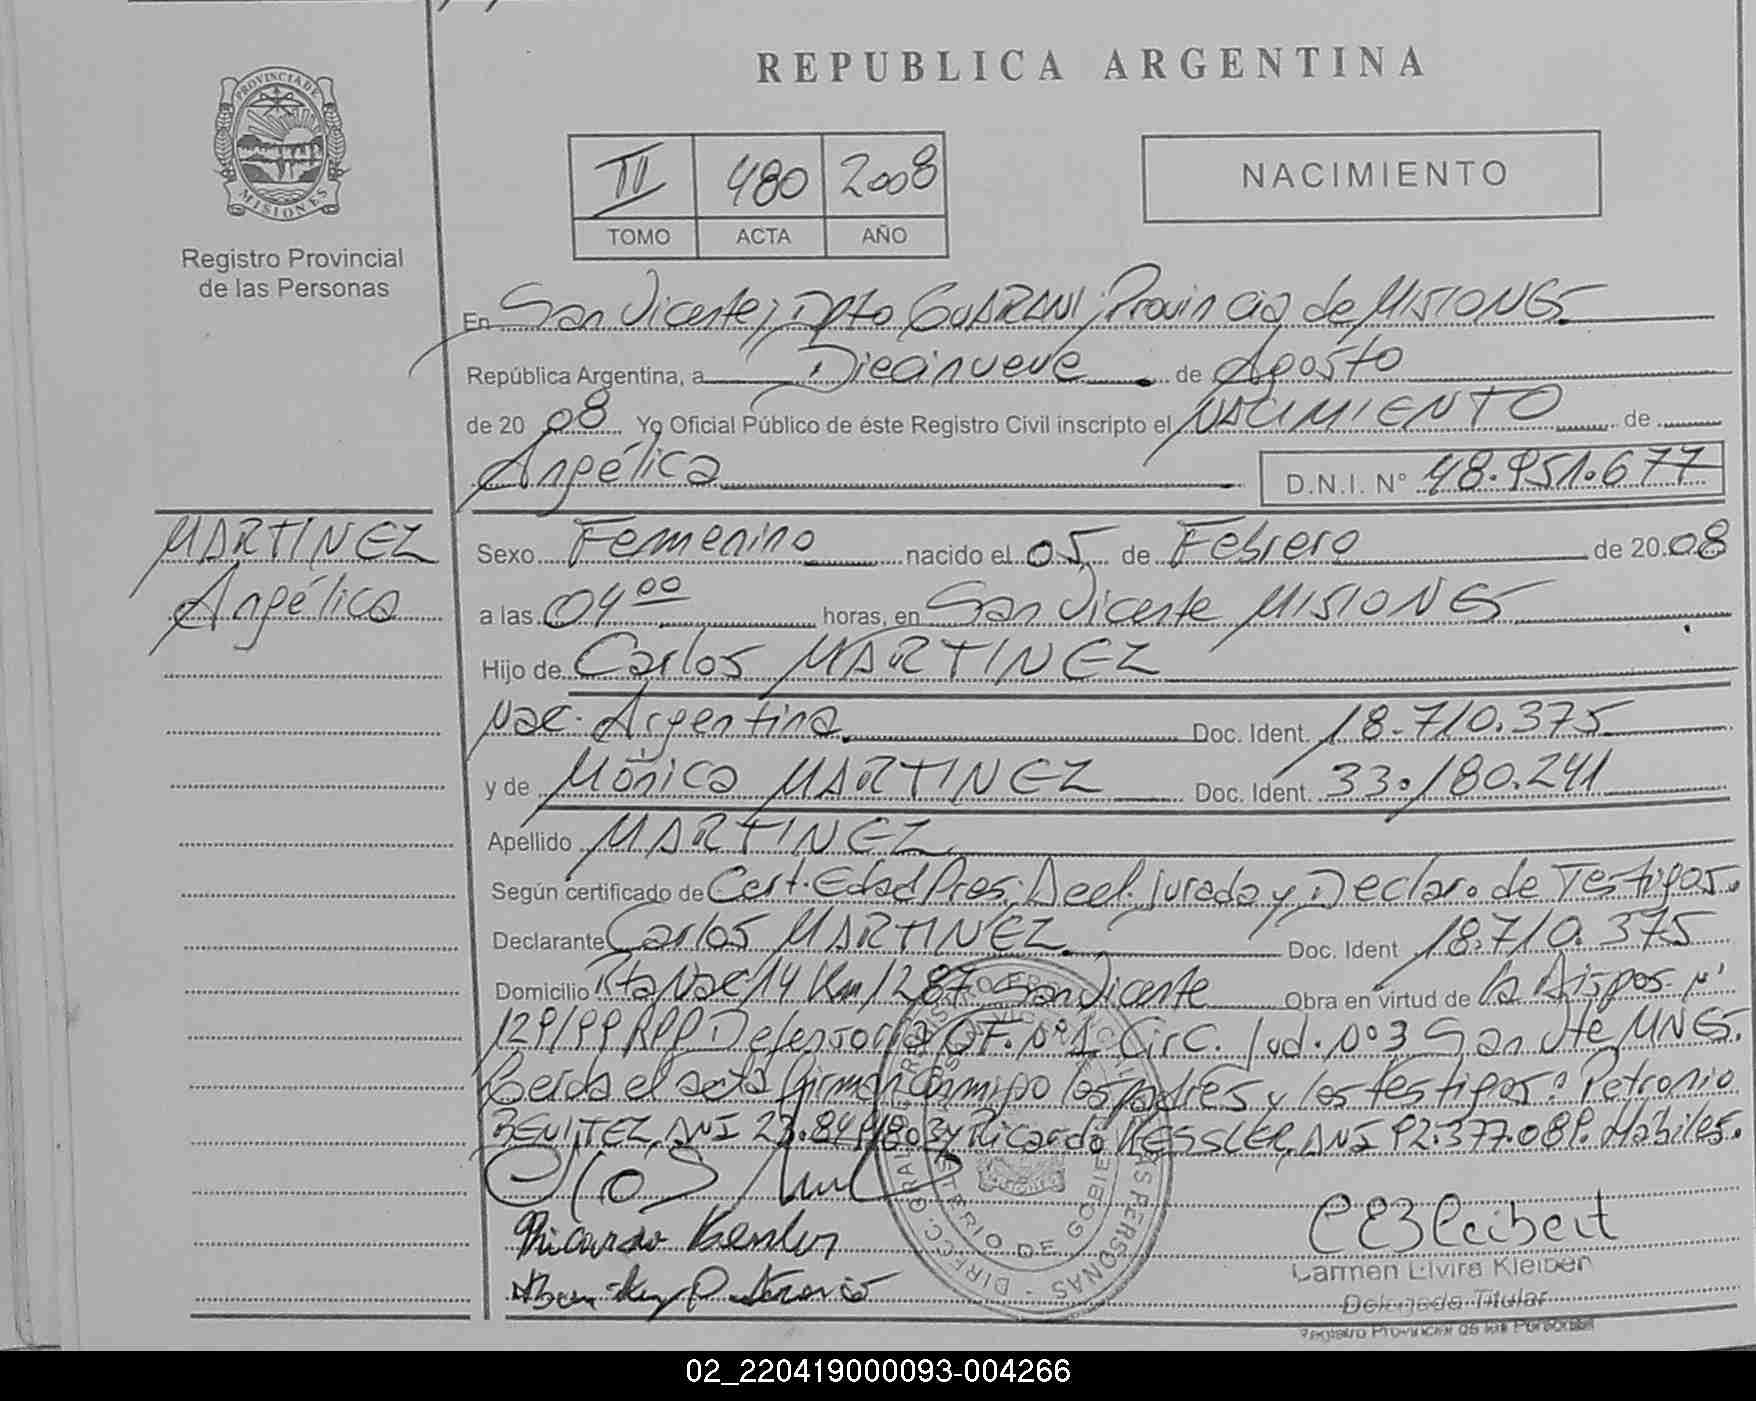 REPUBLICA ARGENTINA
PROVINCIA DE
MISIONES
Registro Provincial
de las Personas
II 480 2008
TOMO ACTA AÑO
NACIMIENTO
En San Vicente, Dpto GUARANI, Provincia de MISIONES
República Argentina, a Diecinueve de Agosto
de 20 08 Yo Oficial Público de éste Registro Civil inscripto el NACIMIENTO de
Angélica D.N.I. Nº 48.951.677
MARTINEZ
Angélica
Sexo Femenino nacido el 05 de Febrero de 20 08
a las 04 00 horas, en San Vicente MISIONES
Hijo de Carlos MARTINEZ
Nac. Argentina Doc. Ident. 18.710.375
y de Mónica MARTINEZ Doc. Ident. 33.180.241
Apellido MARTINEZ
Según certificado de Cert. Edad Pres. Decl. jurada y Declar. de Testigos.
Declarante Carlos MARTINEZ Doc. Ident 18.710.375
Domicilio Rta Nac 14 Km 1287 San Vicente Obra en virtud de la Dispos. Nº
129/99 RPP Defensoria OF. Nº 1 Circ. Jud. Nº 3 San Vte MNES.
Leida el acta firman conmigo los padres y los testigos: Petronio
BENITEZ, DNI 23.849.803 y Ricardo KESSLER, DNI 92.377.089. Hábiles.
Ricardo Kessler
Carmen Elvira Kleibert
Delegada Titular
Registro Provincial de las Personas
02_220419000093-004266